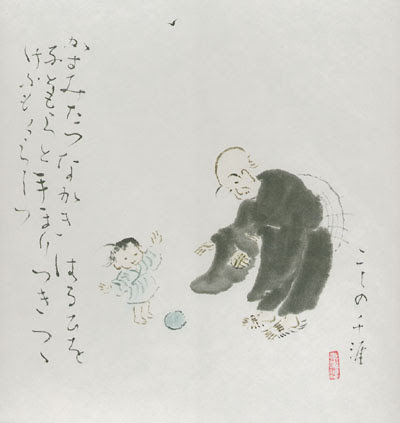 かすみたつながきはるひを
子どもらと手まりつきつゝ
けふもくらしつ
こしの千涯